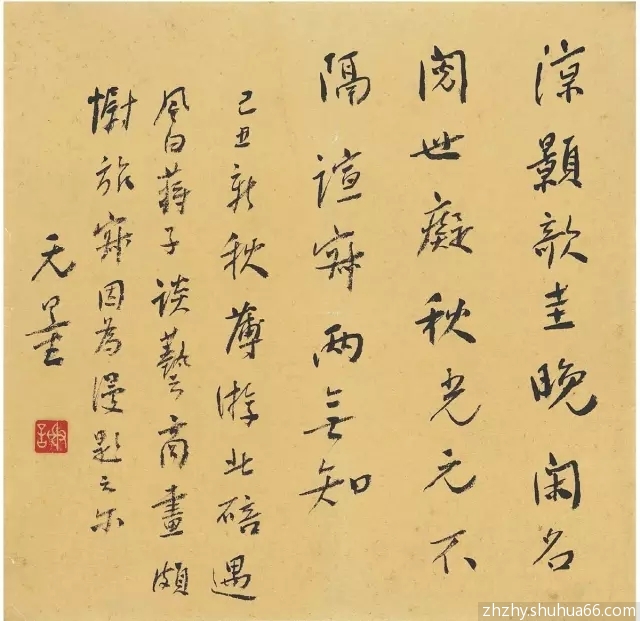 涼顥欹圭晚閑名
閱世癡秋光元不
隔諠寂兩無知
己丑新秋薄游北碚遇
風白蔣子談藝商畫頗
慰旅寂因為漫題之尔
无量
zhzhy.shuhua66.com